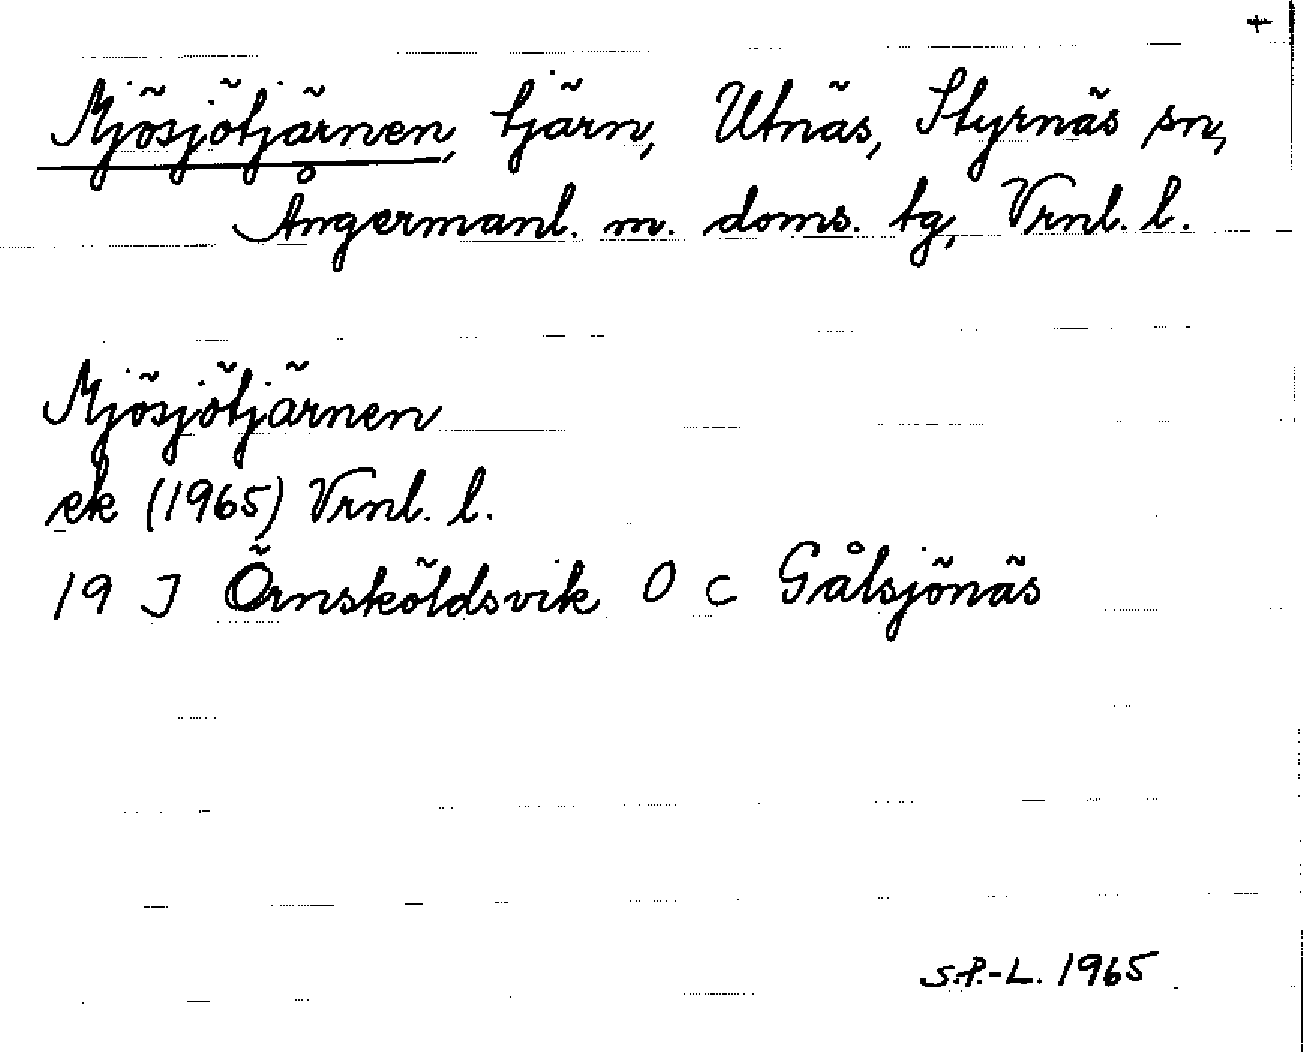 +
Mjösjötjärnen, tjärn, Utnäs, Styrnäs sn,
Ångermanl. m. doms. tg, Vrnl. l.
Mjösjötjärnen
ek (1965) Vrnl. l.
19 J Örnsköldsvik O c Gålsjönäs
S.P.-L. 1965